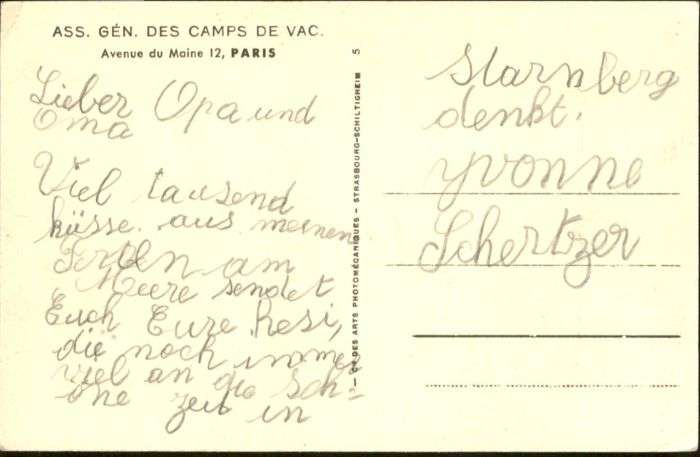 ASS. GÉN. DES CAMPS DE VAC.
Avenue du Maine 12, PARIS
Lieber Opa und
Oma
Viel tausend
küsse. aus meinen
Ferien am
Meere sendet
Euch Eure Resi,
die noch immer
viel an die Sch-
öne Zeit in
Starnberg
denkt.
Yvonne
Schertzer
5
DES ARTS PHOTOMÉCANIQUES - STRASBOURG-SCHILTIGHEIM